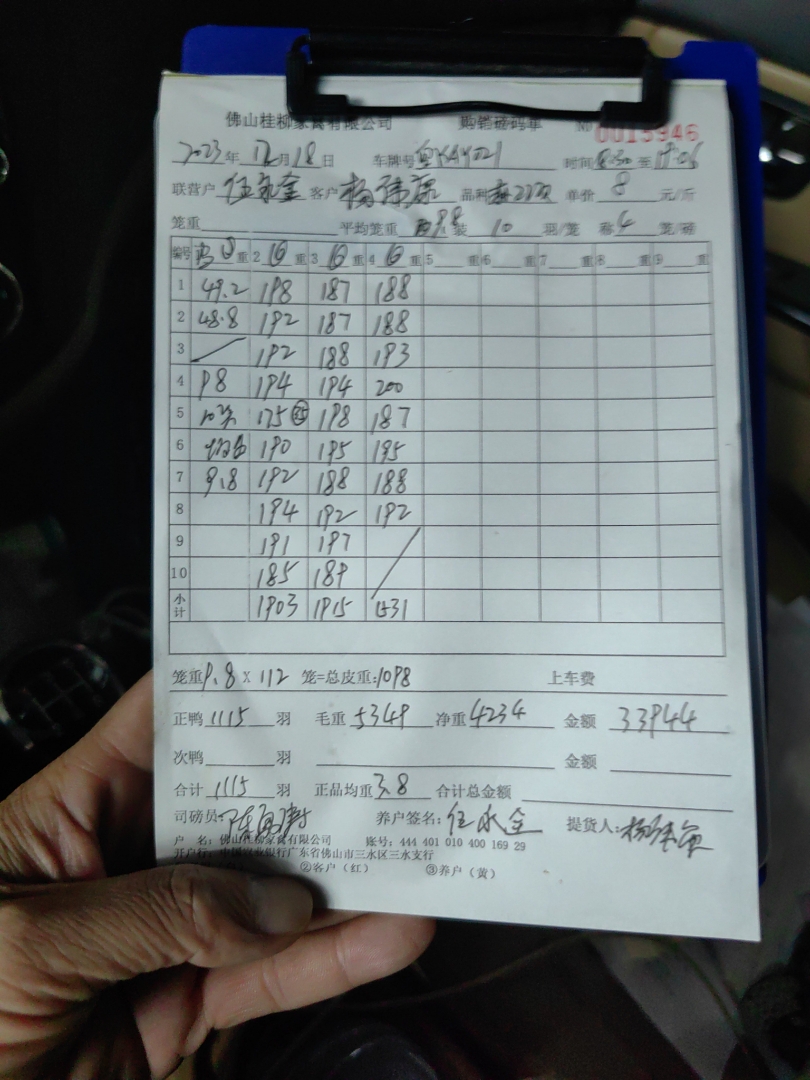 佛山桂柳家禽有限公司 购销磅码单 No 0015946
2023年12月18日 车牌号 粤KAY021 时间 至
联营户 客户 品种 单价 8 元/斤
笼重 平均笼重 9.8 装 10 羽/笼 称 4 笼/磅
编号 重 2 重 3 重 4 重 5 重 6 重 7 重 8 重 9 重
1 49.2 198 187 188
2 48.8 192 187 188
3 / 192 188 193
4 98 194 194 200
5 10笼 175 198 187
6 190 195 195
7 9.8 192 188 188
8 194 192 192
9 191 197
10 185 189
小计 1903 1915 1531
笼重 9.8 X 112 笼=总皮重:1098 上车费
正鸭 1115 羽 毛重 5349 净重 4234 金额 33944
次鸭 羽 金额
合计 1115 羽 正品均重 3.8 合计总金额
司磅员 养户签名: 任永全 提货人:
户 名: 佛山桂柳家禽有限公司 账号: 444 401 010 400 169 29
开户行: 中国农业银行广东省佛山市三水区三水支行
②客户(红) ③养户(黄)